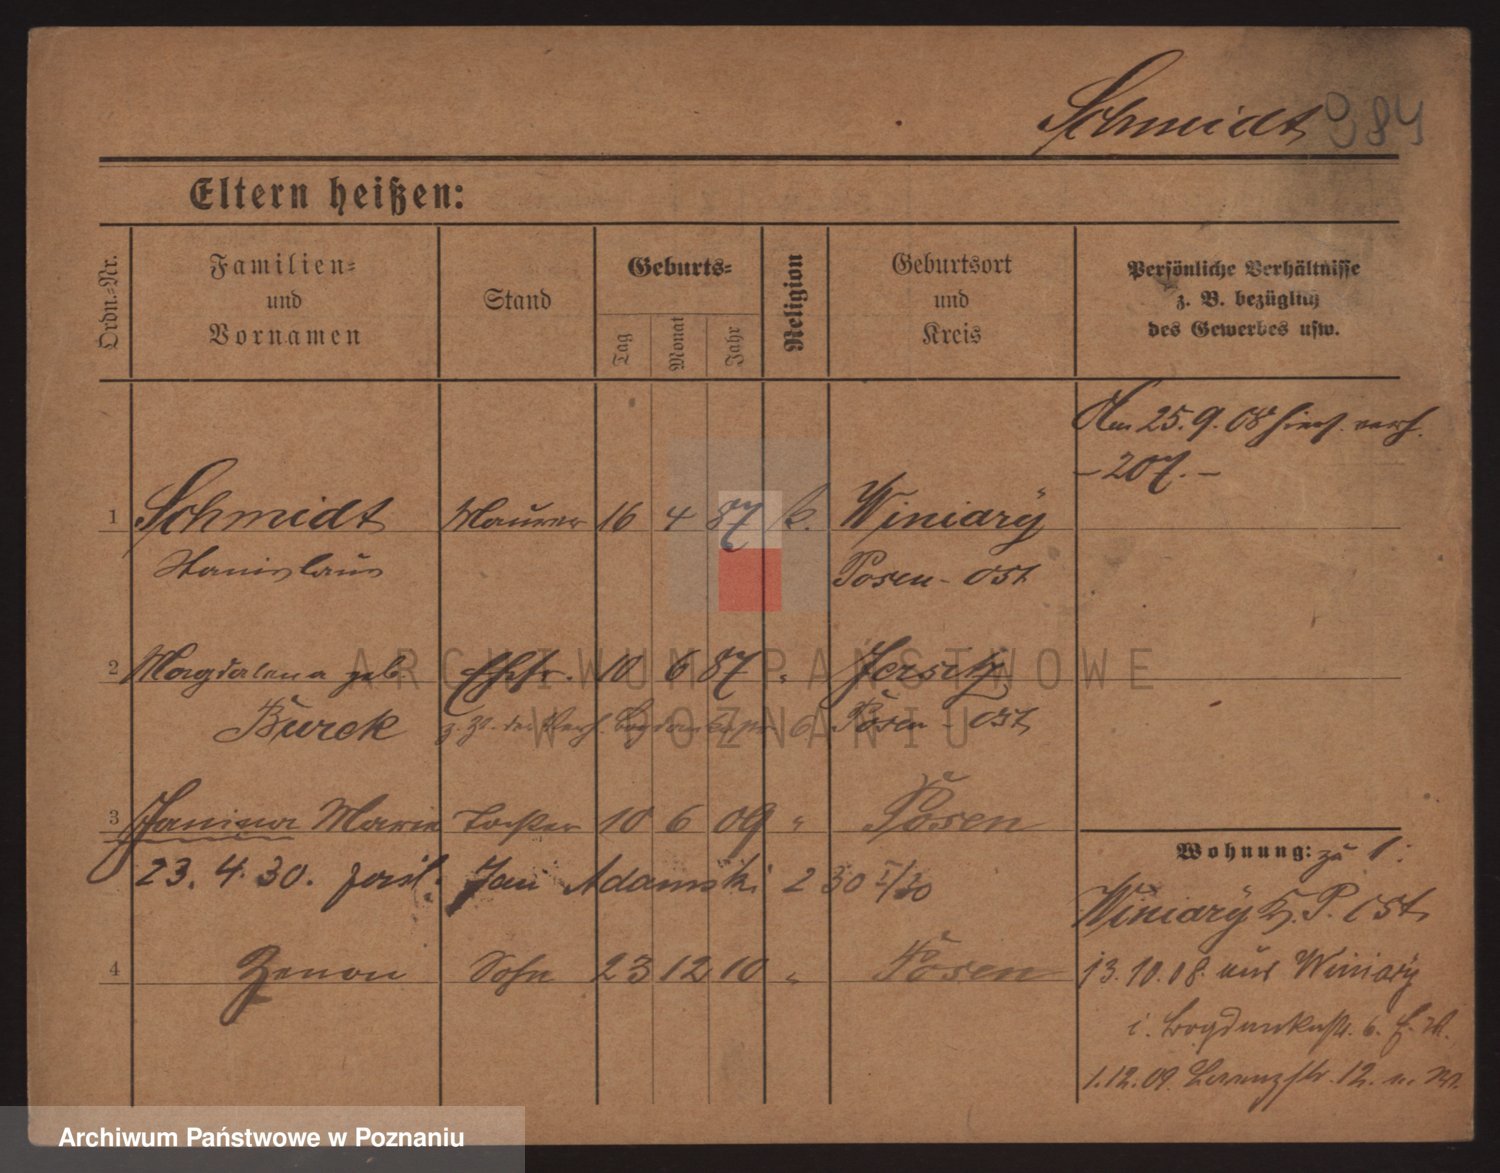 Schmidt 384
Eltern heißen:
Ordn.-Nr.
Familien- und Vornamen
Stand
Geburts-
Tag
Monat
Jahr
Religion
Geburtsort und Kreis
Persönliche Verhältnisse z. B. bezüglich des Gewerbes usw.
Am 25.9.08 hier verh.
- 207. -
1 Schmidt Maurer 16 4 87 k. Winiary
Stanislaus Posen-Ost
2 Magdalena geb. Ehefr. 10 6 87 " Jersitz
Burek z. Zt. 6 Posen-Ost
3 Janina Marie Tochter 10 6 09 " Posen
23. 4. 30. Jan Adamski 2 30
4 Zenon Sohn 23 12 10 " Posen
Wohnung: zu 1:
Winiary K. P. Ost
13.10.08 aus Winiary
i. Bogdankastr. 6.
1.12.09. Lorenzstr. 12.
ARCHIWUM PAŃSTWOWE
W POZNANIU
Archiwum Państwowe w Poznaniu